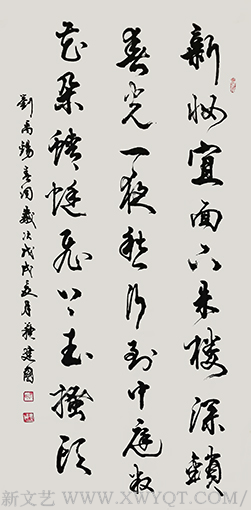 新妝宜面下朱樓深鎖
春光一院愁行到中庭數
花朵蜻蜓飛上玉搔頭
劉禹錫春詞歲次戊戌夏月建國
新文艺/WWW.XWYQT.COM/